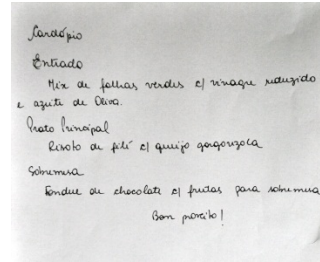 Cardápio
Entrada
Mix de folhas verdes c/ vinagre reduzido
e azeite de Oliva.
Prato Principal
Risoto de filé c/ queijo gorgonzola
Sobremesa
Fondue de chocolate c/ frutas para sobremesa
Bom